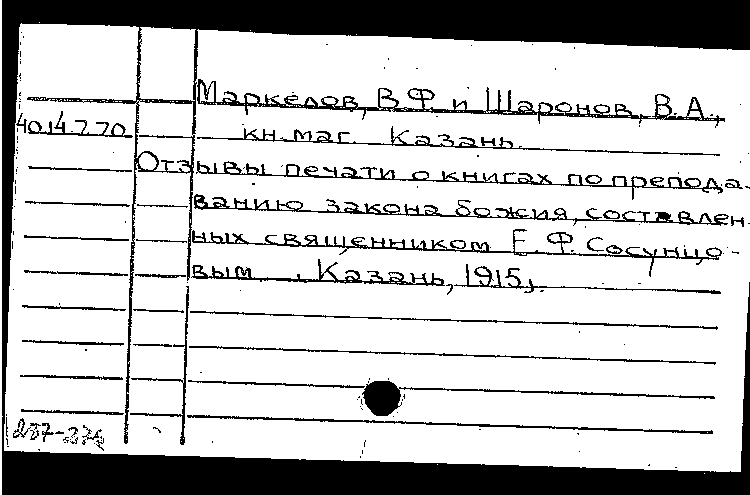 Маркелов, В.Ф. и Шаронов, В.А.,
40.14.7.70. кн.маг. Казань.
Отзывы печати о книгах по препода-
ванию закона божия, составлен-
ных священником Е.Ф. Сосунцо-
вым. Казань, 1915г.